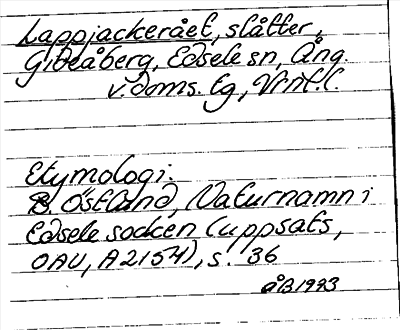 Lappjackerået, slåtter,
Gideåberg, Edsele sn, Ång.
v. doms. tg, Vrnl.l.
Etymologi:
B. Östlund, Naturnamn i
Edsele socken (uppsats,
OAU, A2154), s. 36
ÅB 1993